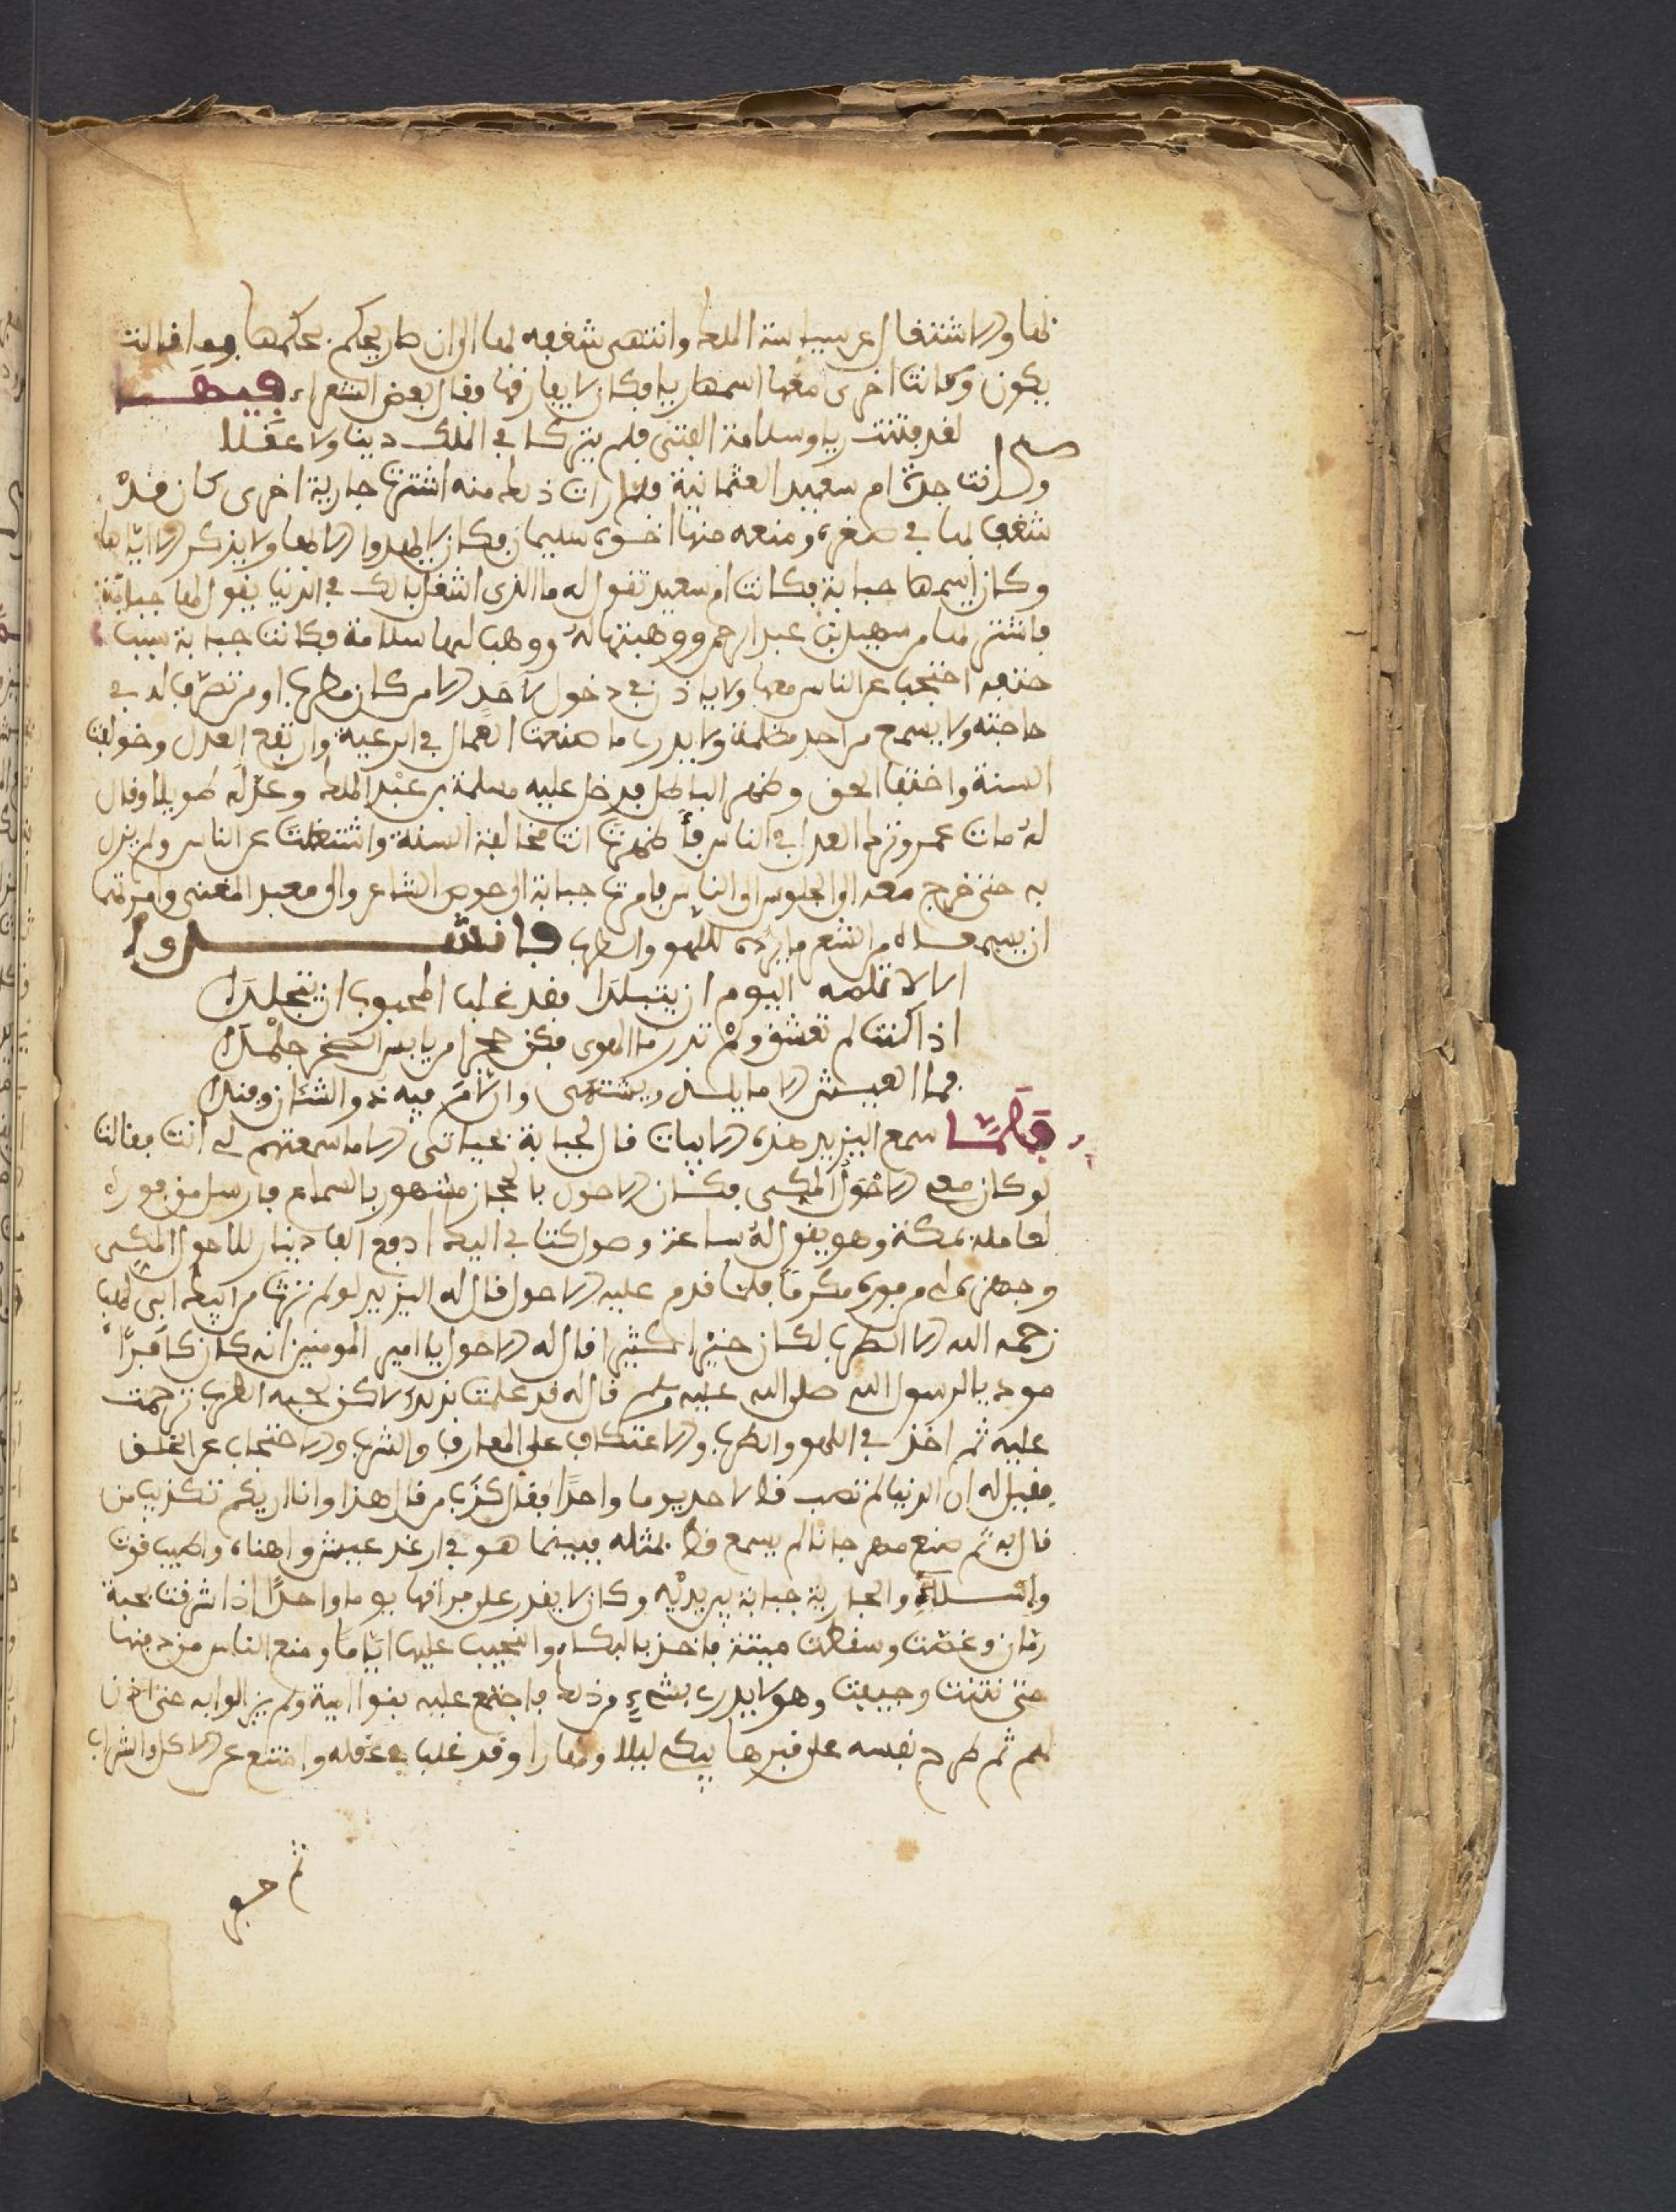 لها والاشتغال عن سياسة الملك وانتهى شغفه لها الى ان صار يحكم بحكمها وما قالت
يكون وكانت اخرى معها اسمها ريا فكان لا يفارقها وقال بعض الشعراء فيهما
لقد فتنت ريا وسلامة الفتى فلم يتركا في الملك دينا ولا عقلا
وكانت جدته ام سعيد العثمانية فلما رات ذلك منه اشترت جارية اخرى كان قد
شغف لها في صغره ومنعه منها اخوه سليمان فكان لا يلهوا الا لها ولا يذكر الا اياها
وكان اسمها حبابة فكانت ام سعيد تقول له ما الذي اشغل بالك في الدنيا يقول لها حبابة
فاشترتها من سهيل بن عبد الرحمن ووهبتها له ووهب لها سلامة فكانت حبابة سبب
حتفه احتجب عن الناس معها ولا ياذن في دخول لاحد الا من كان مطربا او من تصرف له في
حاجته ولا يسمع من احد مظلمة ولا يدري ما صنعت العمال في الرعية وارتفع العدل وخولفت
السنة واختفا الحق وظهر الباطل فدخل عليه مسلمة بن عبد الملك وعذله طويلا وقال
له مات عمر وترك العدل في الناس فأظهرت انت مخالفة السنة واشتغلت عن الناس ولم يزل
به حتى خرج معه الى الجلوس الى الناس فامرت حبابة الاحوص الشاعر والى معبد المغني وامرتهما
ان يسمعاه من الشعر ما يرده للهو والطرب فانشدوا
الا لا تلمه اليوم ان يتبلدا فقد غلب المحبوب ان يتجلدا
اذا كنت لم تعشق ولم تدر ما الهوى فكن حجرا من يابس الصخر جلمدا
فما العيش الا ما يلذ ويشتهى وان لام فيه ذو الشنان وفندا
فلما سمع اليزيد هذه الابيات قال لحبابة بحياتي الا ما سمعتهم لي انت فقالت
لو كان معي الاحول المكي فكان الاحول بالحجاز مشهور بالسماع فارسل من فوره
لعامله بمكة وهو يقول له ساعة وصول كتابي اليك ادفع الف دينار للاحول المكي
وجهزه لي من فوره مكرما فلما قدم عليه الاحول قال له اليزيد لو لم ترث من ابيك ابي لهب
زحمه الله الا الطرب لكان خيرا كثيرا قال له الاحول يا امير المومنين انه كان كافرا
موذيا لرسول الله صلى الله عليه وسلم قال له قد علمت بذلك لاكن لحبه الطرب ترحمت
عليه ثم اخذ في اللهو والطرب والاعتكاف على المعازف والشرب والاحتجاب عن الخلق
فقيل له ان الدنيا لم تصف قط لاحد يوما واحدا فقال كذب من قال هذا وانا اريكم تكذيب من
قال به ثم صنع مهرجانا لم يسمع قط بمثله فبينما هو في ارغد عيش واهناه واطيب قوت
واسلاه والجارية حبابة بين يديه وكان لا يقدر على فراقها يوما واحدا اذا شرقت بحبة
رمان وغصت وسقطت ميتة فاخذ بالبكاء والنحيب عليها اياما ومنع الناس من دفنها
حتى نتنت وجيفت وهو لا يدري بشيء من ذلك فاجتمع عليه بنوا امية ولم يزالوا به حتى اذن
لهم ثم طرح نفسه على قبرها يبكي ليلا ونهارا وقد غلب في عقله وامتنع عن الاكل والشراب